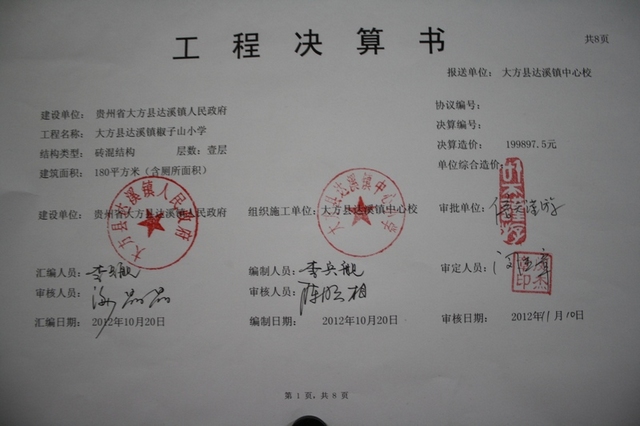 工程决算书
共8页
报送单位： 大方县达溪镇中心校
建设单位： 贵州省大方县达溪镇人民政府
协议编号：
工程名称： 大方县达溪镇椒子山小学
决算编号：
结构类型： 砖混结构 层数：壹层
决算造价： 199897.5元
建筑面积： 180平方米（含厕所面积）
单位综合造价：
建设单位： 贵州省大方县达溪镇人民政府 组织施工单位：大方县达溪镇中心校 审批单位：
大方县达溪镇人民政府
大方县达溪镇中心学校
汇编人员： 编制人员： 审定人员：
审核人员： 审核人员：
汇编日期： 2012年10月20日 编制日期： 2012年10月20日 审核日期： 2012年11月10日
第 1 页，共 8 页